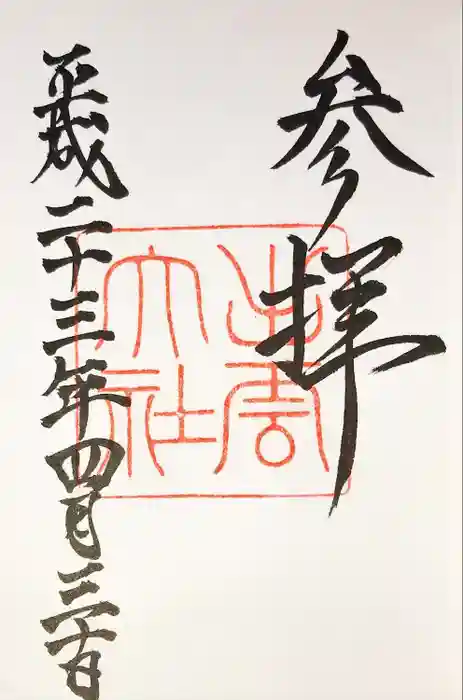 参拝
出雲大社
平成二十三年四月三十日